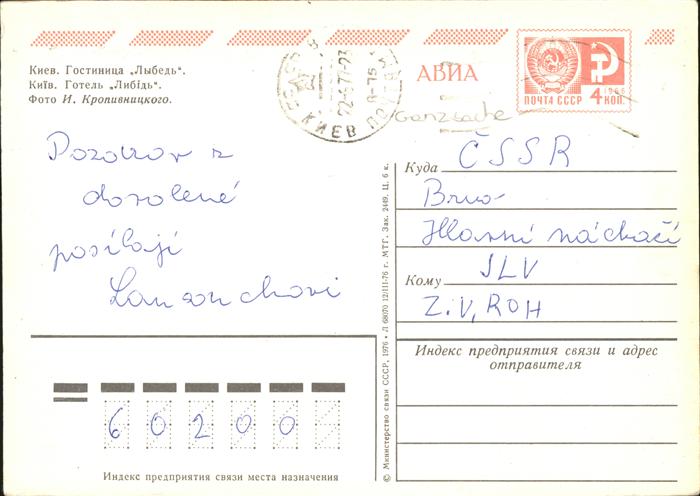 Киев. Гостиница „Лыбедь“.
Київ. Готель „Либідь“.
Фото И. Кропивницкого.
КИЕВ ПОЧТАМТ
22-6-77-23
АВИА
ПОЧТА СССР
1966
4 КОП.
Ganzsache
Pozdrav z
dovolené
posílají
Куда ČSSR
Brno
Hlavní nádraží
Кому JLV
Z.V, ROH
Индекс предприятия связи и адрес
отправителя
60200
Индекс предприятия связи места назначения
© Министерство связи СССР, 1976 • Л 68070 12/III-76 г. МТГ. Зак. 2449. Ц. 6 к.